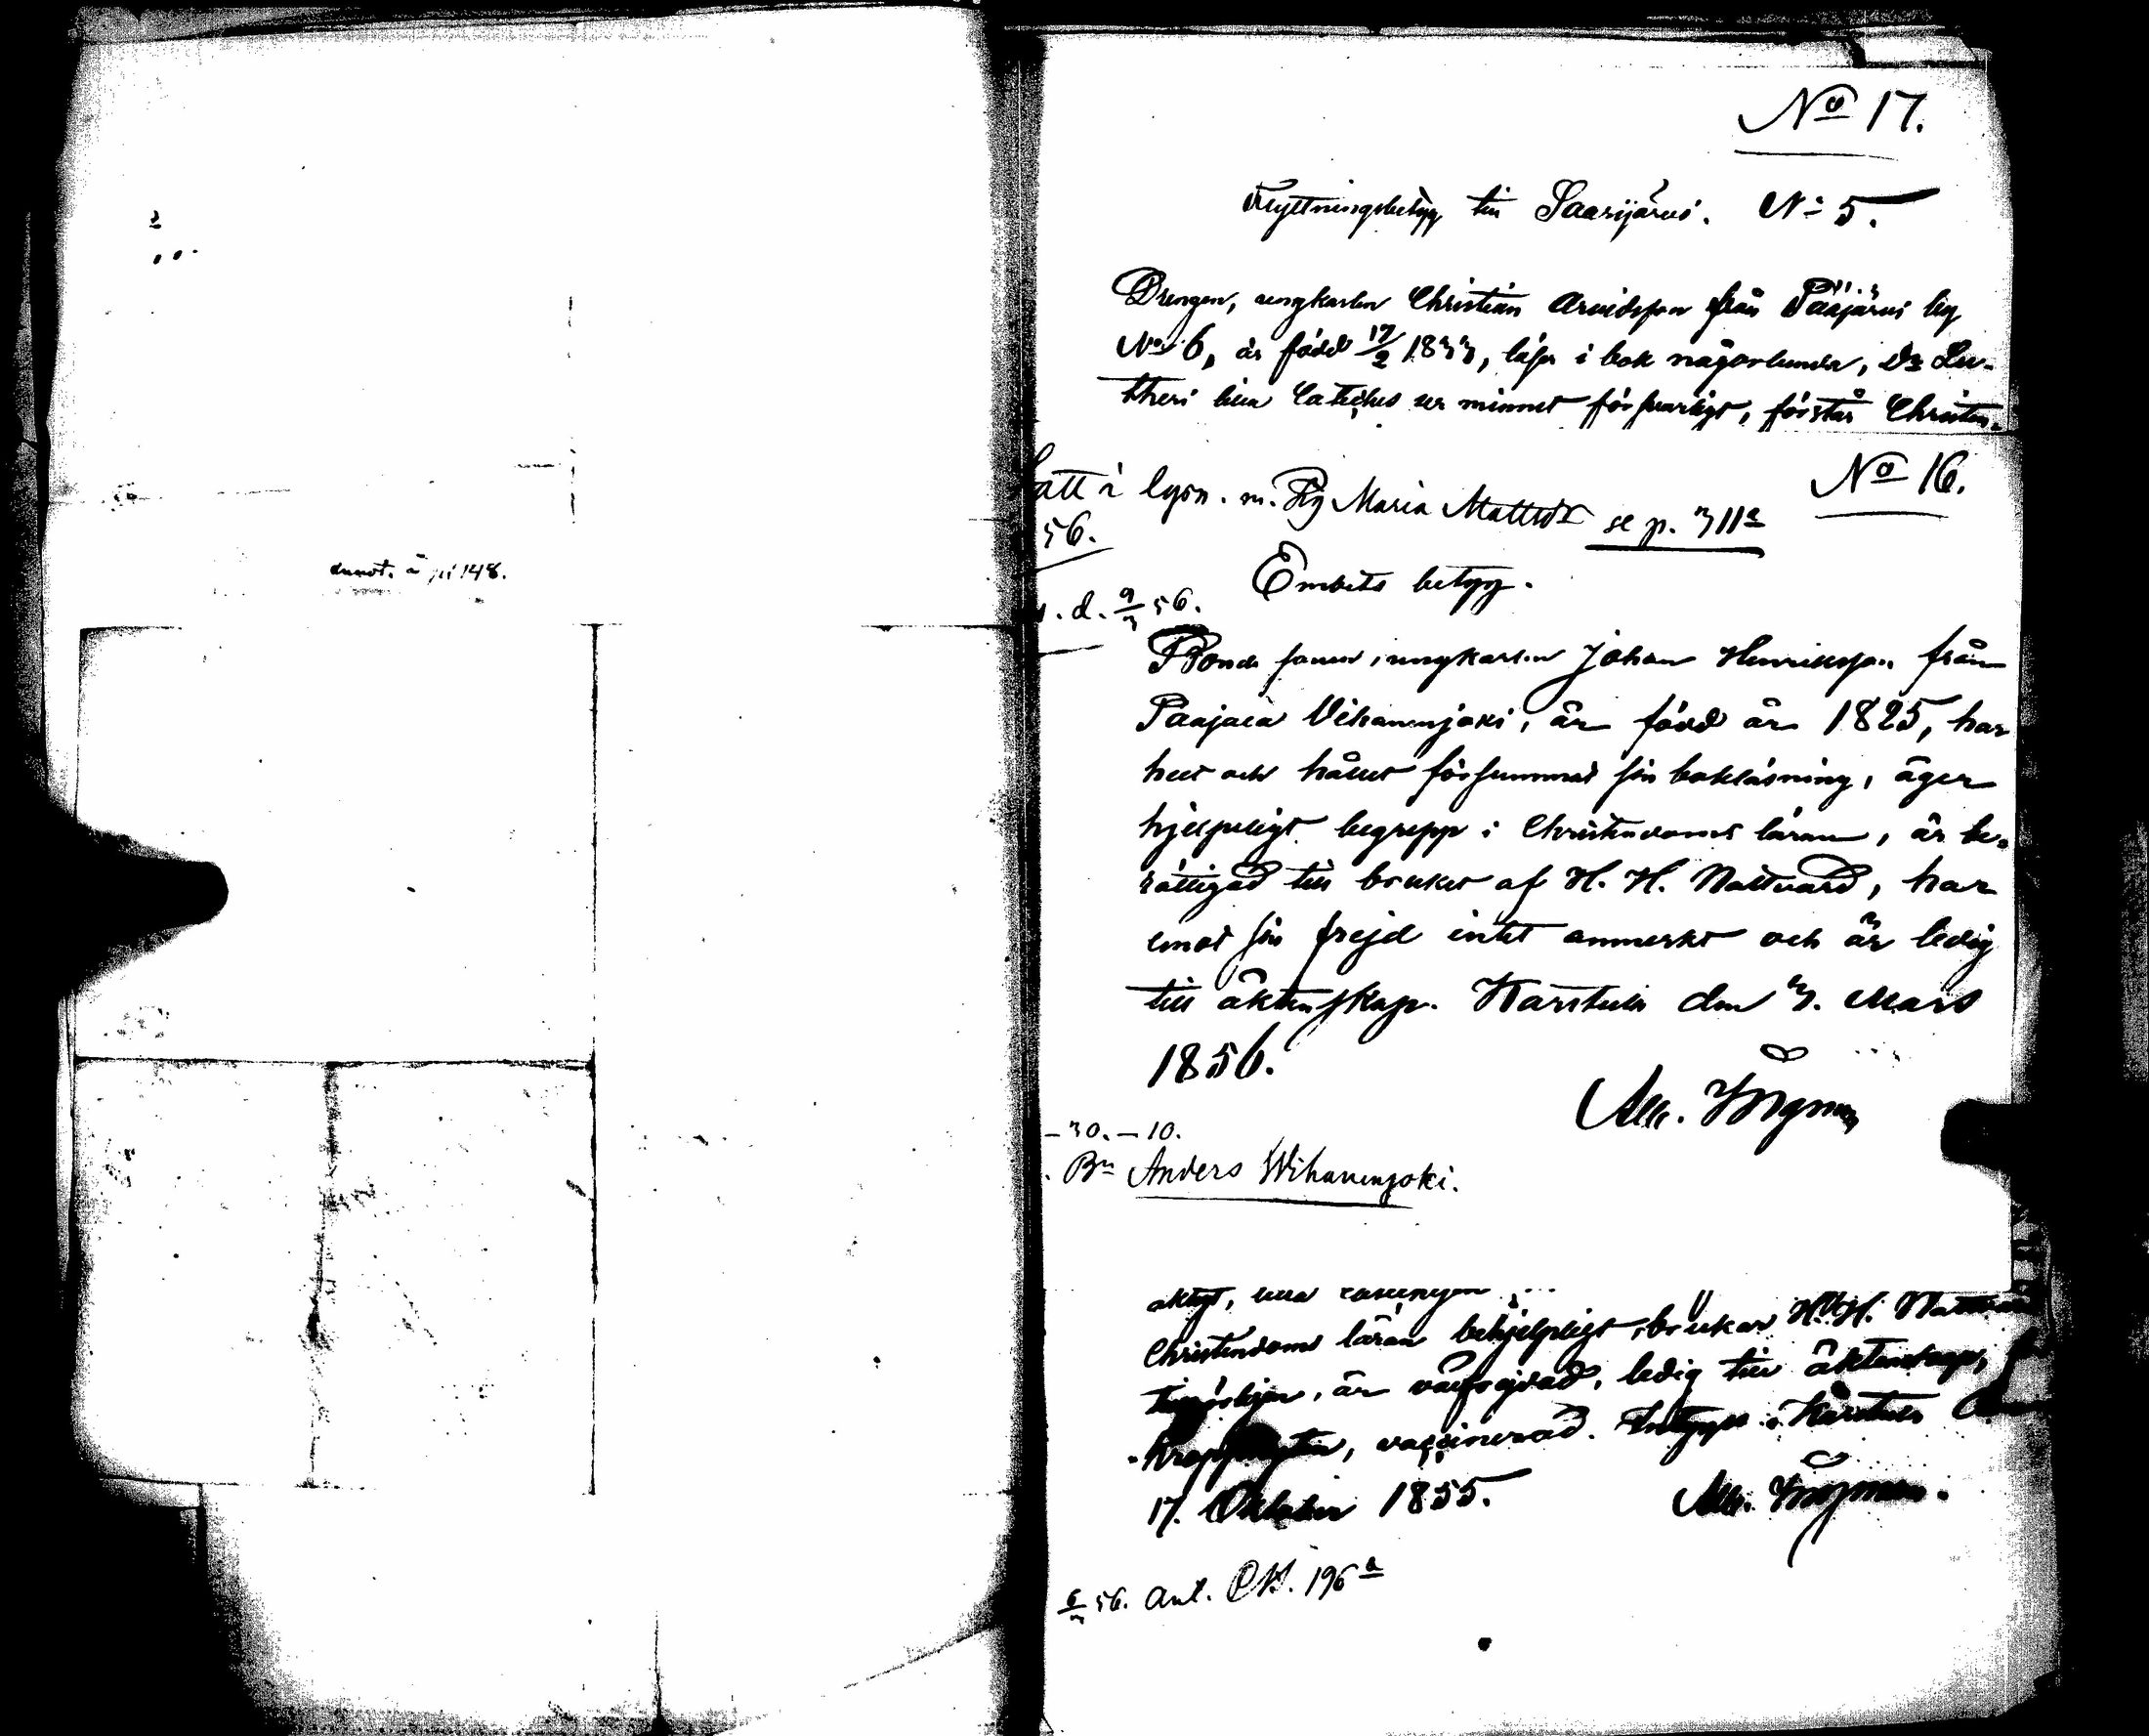 annot. å p. 148.
No 17.
Flyttningsbetyg till Saarijärvi. No 5.
Drengen, ungkarlen Christian Arvidsson från Pääjärvi by
No 6, är född 17/2 1833, läser i bok någorlunda, Dr Lu-
theri lilla Cateches ur minnet försvarligt, förstår Christen-
No 16.
Satt i lysn. m. Pig Maria Mattsdr se p. 311a
56.
d. 9/3 56.
Embets betyg.
Bonde sonen, ungkarlen Johan Henriksson från
Paajala Vihanninjoki, är född år 1825, har
helt och hållet försummat sin bokläsning, äger
hjelpeligt begrepp i Christendoms läran, är be-
rättigad till bruket af H. H. Nattvard, har
emot sin frejd intet anmerkt och är ledig
till äktenskap. Karstula den 3. Mars
1856.
Alb. Ingman
-30. -10.
Bn Anders Wihanninjoki.
aktigt,
Christendoms läran behjelpligt, brukar H. H. Nattvard
är välfrejdad, ledig till äktenskap,
vaccinerad. Intygas i Karstula den
17. Oktober 1855. Alb. Ingman.
6/3 56. Ant. CB. 196a